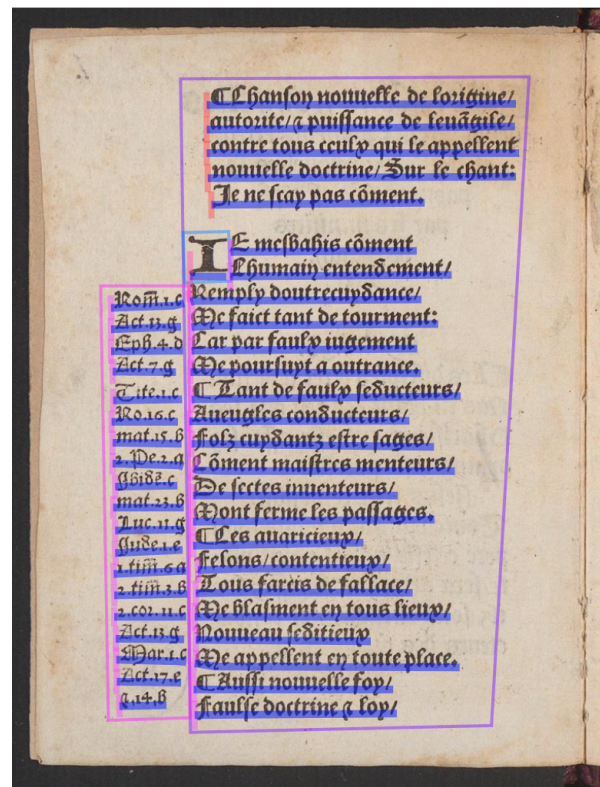 ⁋Chanson nouuelle de lorigine/
autorite/⁊ puissance de leuãgile/
contre tous ceulx qui le appellent
nouuelle doctrine/ Sur le chant:
Je ne scay pas cõment.
IE mesbahis cõment
Lhumain entendement/
Remply doutrecuydance/
Me faict tant de tourment:
Car par faulx iugement
Me poursuyt a outrance.
⁋Tant de faulx seducteurs/
Aueugles conducteurs/
Folz cuydantz estre sages/
Cõment maistres menteurs/
De sectes inuenteurs/
Mont ferme les passages.
⁋Les auaricieux/
Felons/contentieux/
Tous farcis de fallace/
Me blasment en tous lieux/
Nouueau seditieux
Me appellent en toute place.
⁋Aussi nouuelle foy/
Faulse doctrine ⁊ loy/
Rom̃.1.c
Act.13.g
Eph.4.d
Act.7.g
Tite.1.c
Ro.16.c
mat.15.b
2.Pe.2.a
Ibidẽ.c
mat.23.b
Luc.11.g
Jude.1.e
1.tim̃.6 a
2.tim̃.3.b
2.cor.11.c
Act.13.g
Mar.1.c
Act.17.e
⁊.14.b